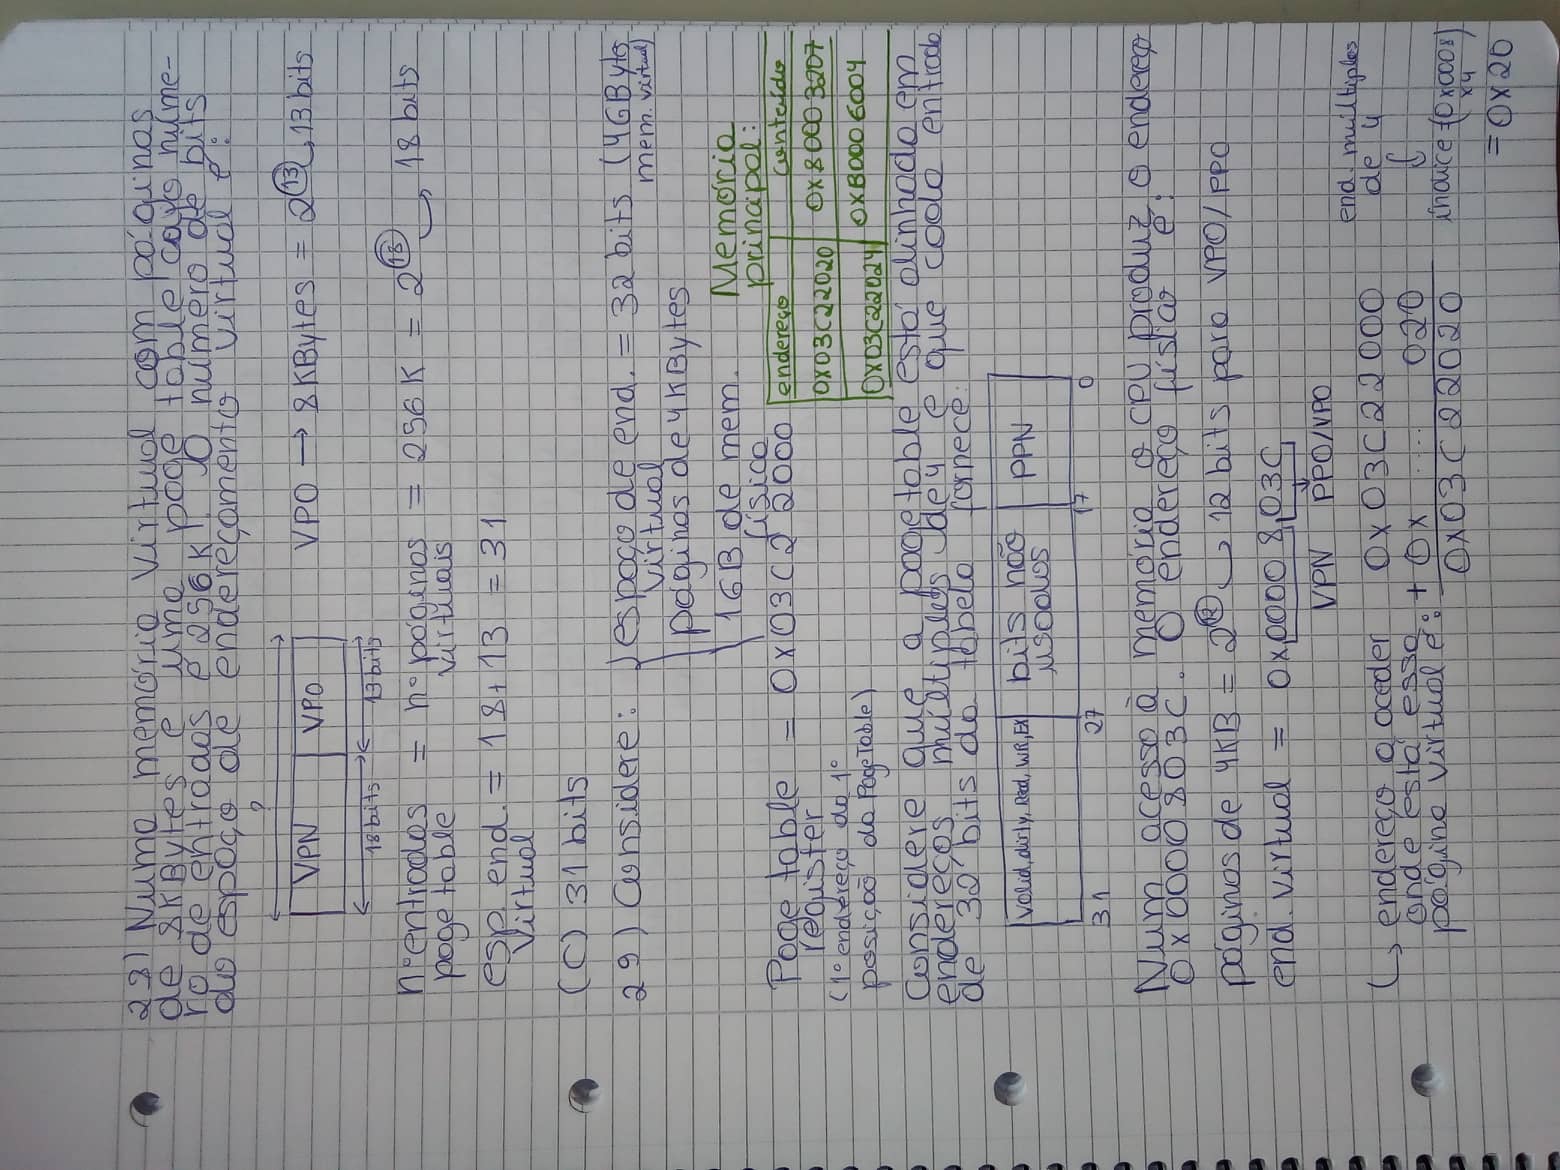 28) Numa memória virtual com páginas
de 8KBytes e uma page table cayo núme-
ro de entradas é 256K. O número de bits
do espaço de endereçamento virtual é:
?
VPN VPO VPO → 8KBytes = 2^13 13 bits
18 bits 13 bits
nº entradas = nº páginas = 256K = 2^18 18 bits
page table virtuais
esp. end. = 18 + 13 = 31
virtual
(C) 31 bits
29) Considere: espaço de end. = 32 bits (4GBytes
virtual mem. virtual)
páginas de 4KBytes
1GB de mem.
física
Memória
principal:
Page table = 0x03C22000
register
(1º endereço da 1º
posição da PageTable)
endereço conteúdo
0x03C22020 0x80003207
0x03C22024 0xB0006004
Considere que a pagetable está alinhada em
endereços múltiplos de 4 e que cada entrada
de 32 bits da tabela fornece:
Valid, dirty, Read, WR, EX bits não PPN
usados
31 27 17 0
Num acesso à memória o CPU produz o endereço
0x0000803C. O endereço físico é:
páginas de 4KB = 2^12 → 12 bits para VPO/PPO
end. virtual = 0x00008 03C
VPN PPO/VPO
↳ endereço a aceder 0x03C22000
onde está essa + 0x .... 020
página virtual é: 0x03C22020
end. múltiplos
de 4
índice (0x0008)
x4
= 0x20